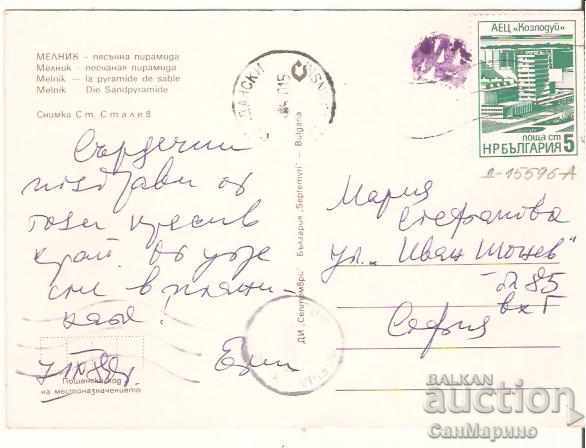 МЕЛНИК – пясъчна пирамида
Мелник – песчаная пирамида
Melnik – la pyramide de sable
Melnik – Die Sandpyramide
Снимка Ст. Сталев
Сърдечни
поздрави от
този красив
край.
сме в
Ели
Пощенски код
на местоназначението
ДИ „Септември“ България „Septemvri“ – Bulgaria
АЕЦ „Козлодуй“
поща ст
НР БЪЛГАРИЯ 5
А-15596-А
Мария
Стефанова
ул. „Иван
85
вх Г
София
BALKAN
auction
СанМарино